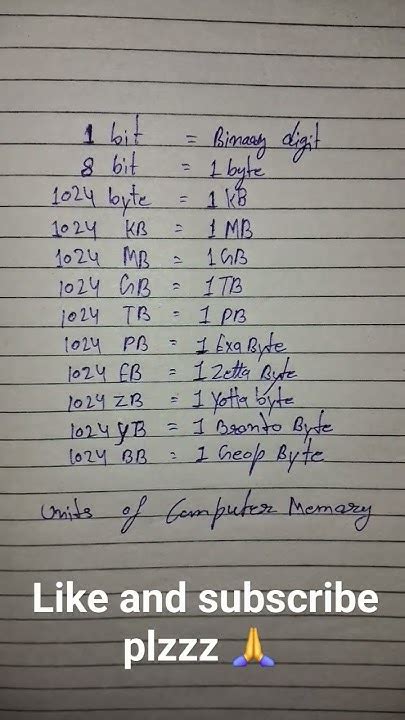 1 bit = Binary digit
8 bit = 1 byte
1024 byte = 1 KB
1024 KB = 1 MB
1024 MB = 1 GB
1024 GB = 1 TB
1024 TB = 1 PB
1024 PB = 1 Exa Byte
1024 EB = 1 Zetta Byte
1024 ZB = 1 Yotta byte
1024 YB = 1 Bronto Byte
1024 BB = 1 Geop Byte
Units of Computer Memory
Like and subscribe
plzzz 🙏